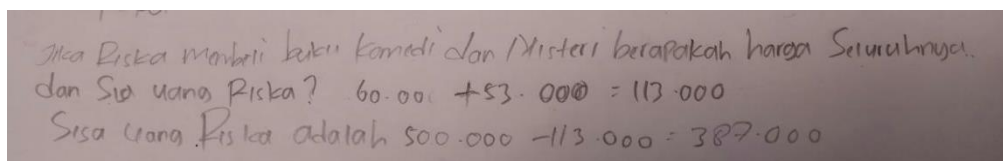 Jika Riska membeli buku komedi dan Misteri berapakah harga Seluruhnya.
dan Sisa uang Riska? 60.000 +53.000 = 113.000
Sisa uang Riska adalah 500.000 -113.000 = 387.000